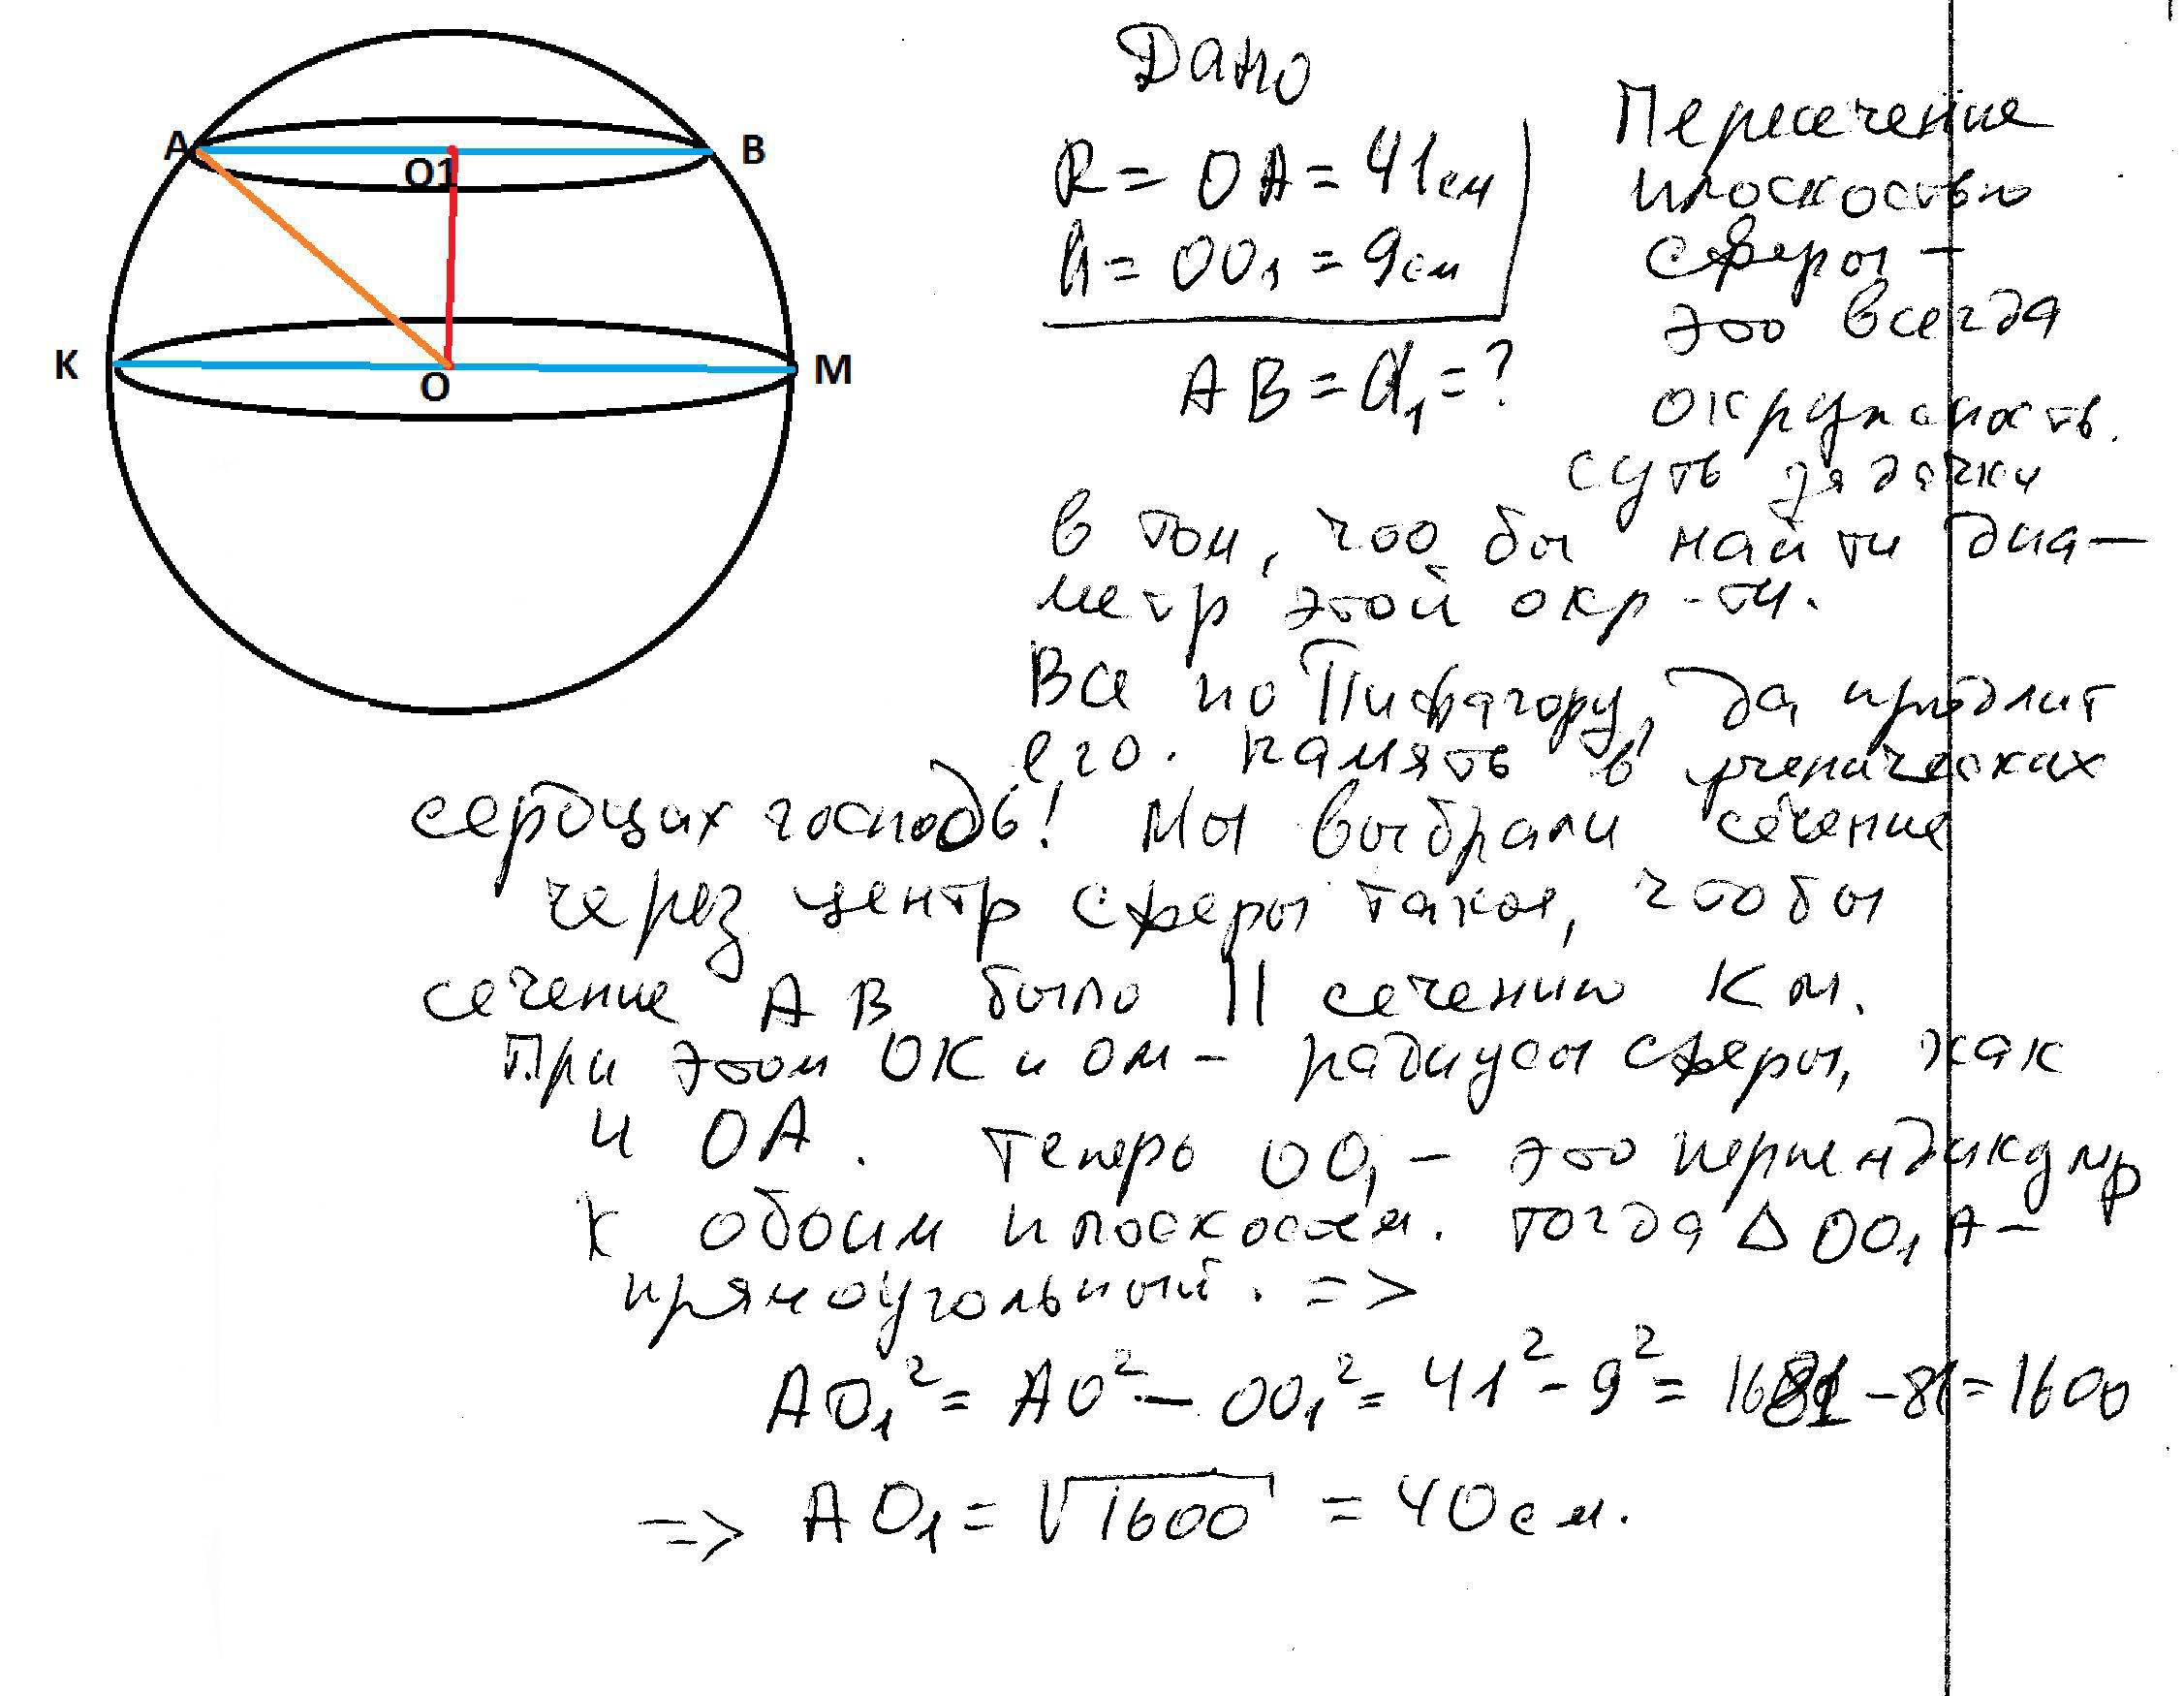 Дано
R = OA = 41см
h = OO₁ = 9см
AB = d₁ = ?
Пересечение
плоскостью
сферы -
это всегда
окружность.
суть задачки
в том, что бы найти диа-
метр этой окр-ти.
Все по Пифагору, да продлит
его память в ученических
сердцах господь! Мы выбрали сечение
через центр сферы такое, чтобы
сечение AB было || сечению KM.
При этом OK и OM - радиусы сферы, как
и OA. Теперь OO₁ - это перпендикуляр
к обоим плоскостям. тогда Δ OO₁A -
прямоугольный. =>
AO₁² = AO² - OO₁² = 41² - 9² = 1681 - 81 = 1600
=> AO₁ = √1600 = 40 см.
A
O1
B
K
O
M